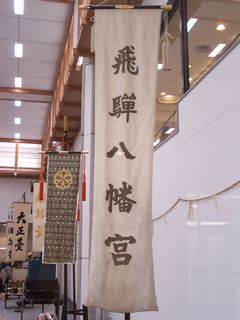 飛騨八幡宮
大正臺